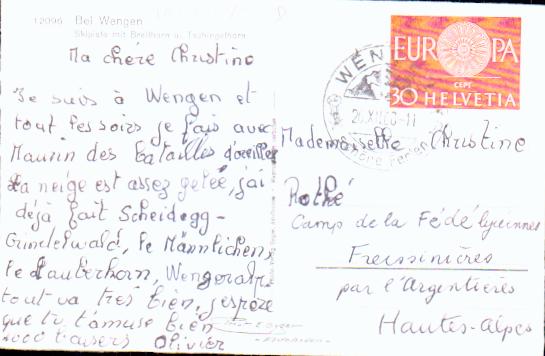 12096 Bei Wengen
Skipiste mit Breithorn u. Tschingelhorn
Ma chére Christine
Je suis à Wengen et
tout les soirs je fais avec
Maurin des batailles d'oreiller
La neige est assez gelée, j'ai
déjà fait Scheidegg-
Grindelwald, le Männlichen,
le Lauberhorn, Wengeralp,
tout va très bien, j'espère
que tu t'amuse bien
1000 baisers Olivier
EUROPA
CEPT
30 HELVETIA
WEN
Mademoiselle Christine
Rothé
Camp de la Fédé lycéennes
Freissinières
par l'Argentières
Hautes-Alpes